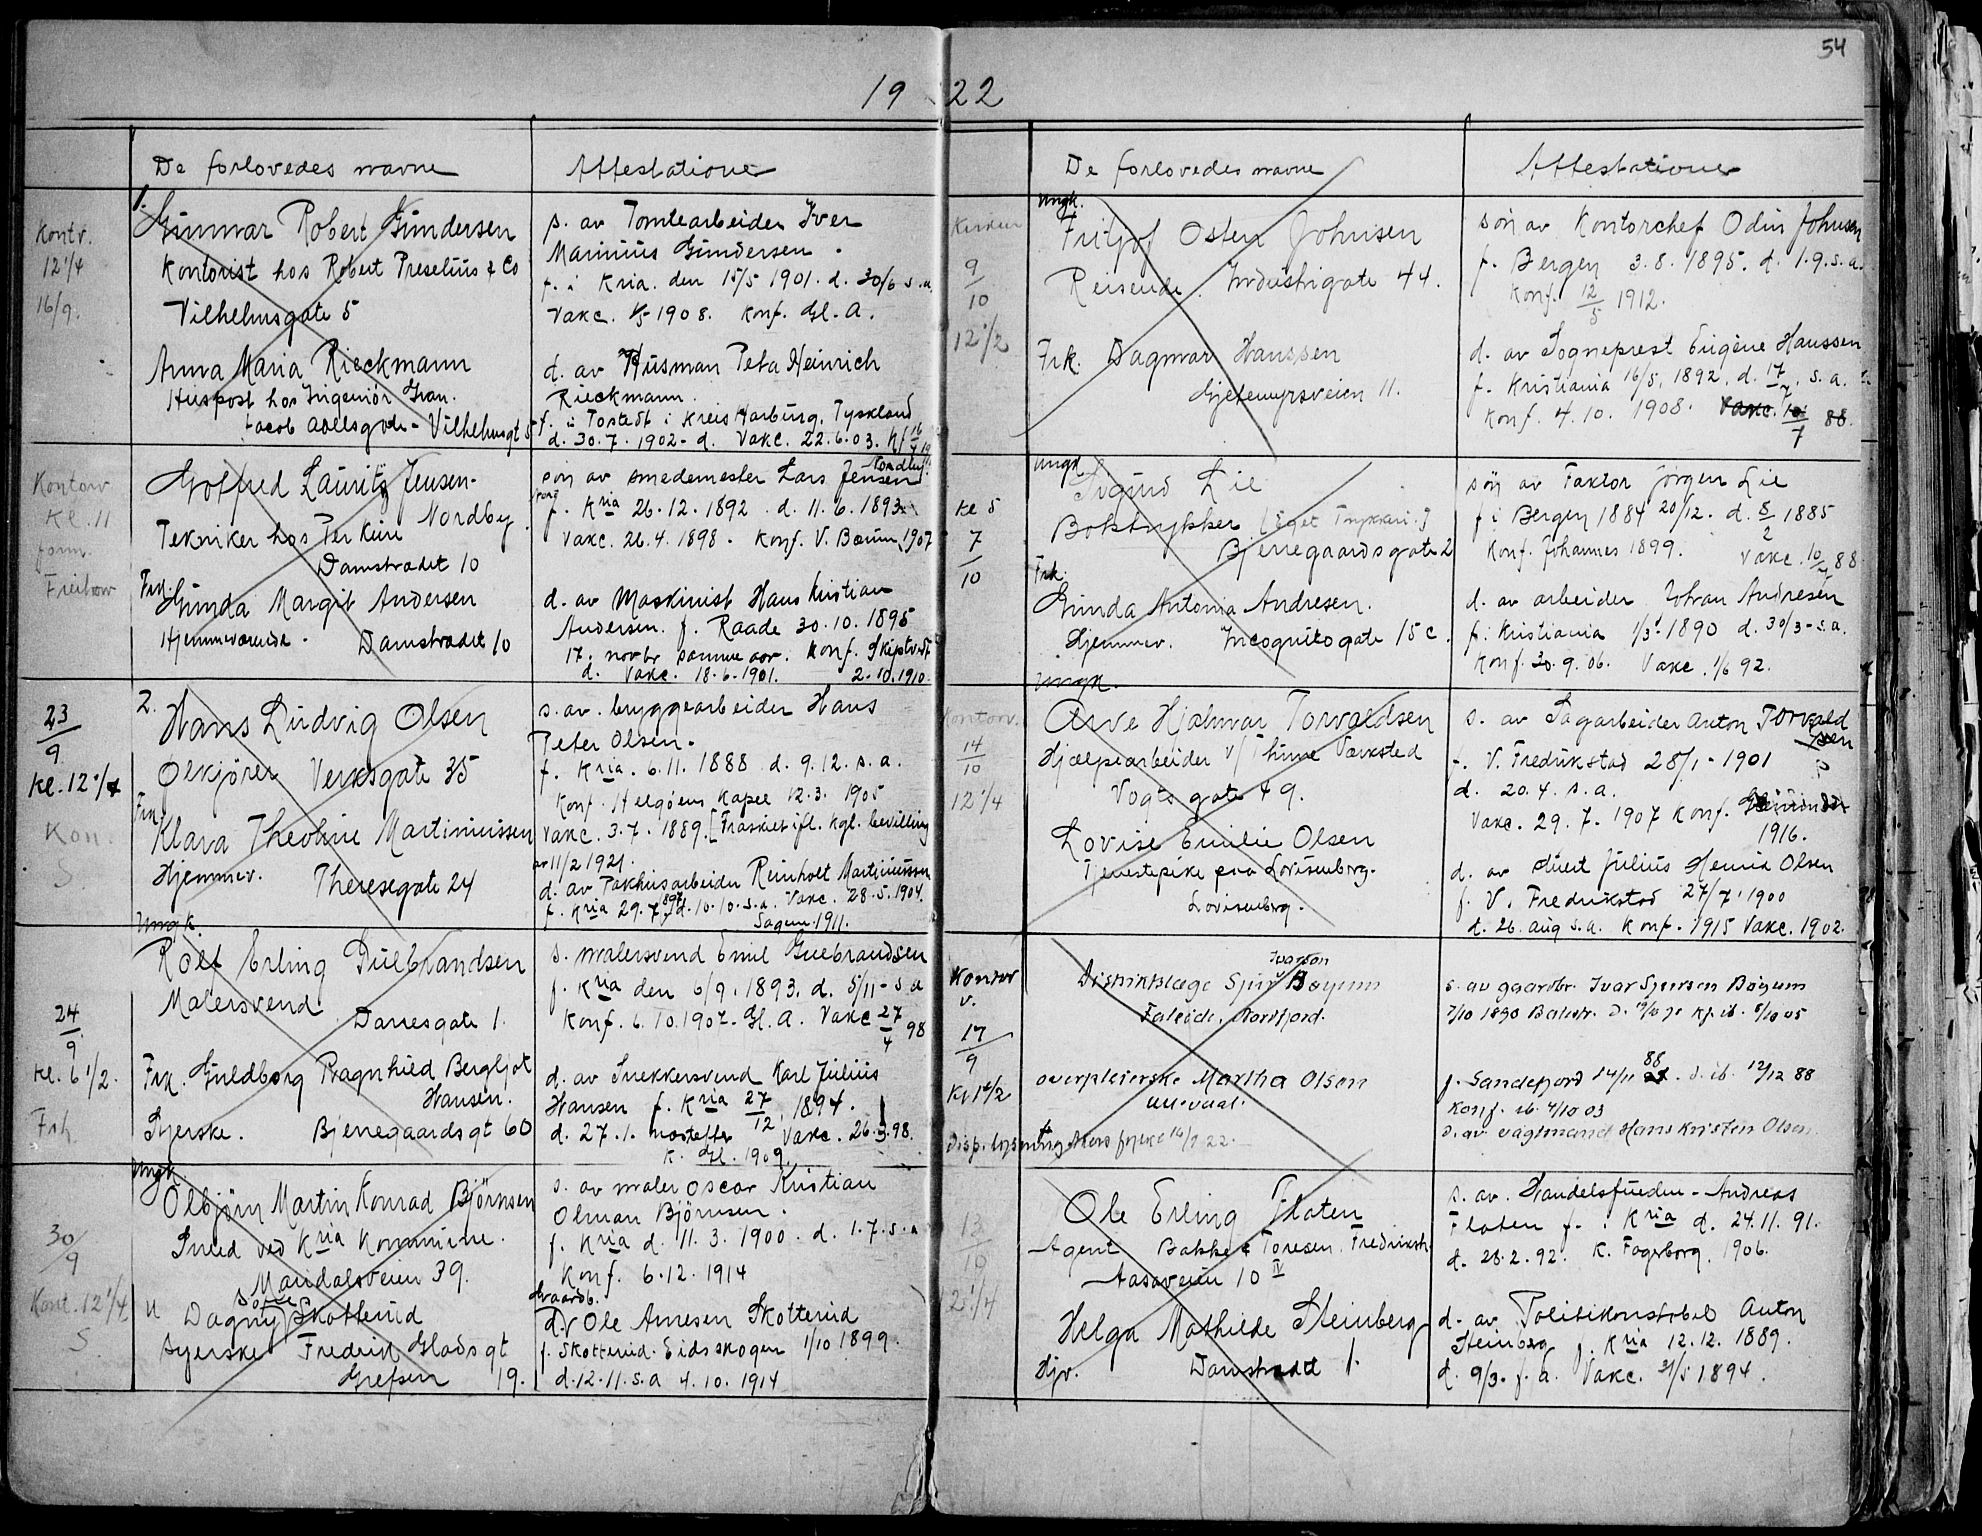 54
19 22
De forlovedes navne
Attestationer
Kontr.
12 1/4
16/9.
1.
Gunnar Robert Gundersen
Kontorist hos Robert Preselius & Co
Vilhelmsgate 5
Anna Maria Rieckmann
Huspost hos Ingeniör
Jacob Aallsgde - Vilhelmsgt 5
s. av Tomtearbeider Iver
Marinius Gundersen.
f. i Kria. den 15/5 1901. d. 30/6 s.a.
Vakc. 1/5 1908. Konf. Gl. A.
d. av Husman Peta Heinrich
Rieckmann.
f. i Tostedt i Kreis Harburg, Tyskland
d. 30.7.1902 - d. Vakc. 22.6.03.
Kontor
Kl. 11
Gotfred Lauritz Jensen-
Nordby
Tekniker hos Per Kure
Damstradet 10
Frk.
Gunda Margit Andersen
Hjemmeværende. Damstradet 10
søn av smedemester Lars Jensen
Nordby
f. Kria 26.12.1892. d. 11.6.1893
Vakc. 26.4.1898. Konf. V. Bærum 1907
d. av Maskinist Hans Kristian
Andersen. f. Raade 30.10.1895
17. novbr samme aar. Konf. Skiptvedt
d. Vakc. 18.6.1901. 2.10.1910.
23/9
Kl. 12 1/4
Kon.
S.
2.
Hans Ludvig Olsen
Ølkjører Verksgate 35
Frk.
Klara Theoline Martiniussen
Hjemmev. Theresegate 24
s. av. bryggearbeider Hans
Peter Olsen.
f. Kria. 6.11.1888 d. 9.12. s.a.
Konf. Helgøens Kapel 12.3. 1905
Vakc. 3.7.1889. [Fraskilt ifl. kgl. bevilling
av 11/2 1921.
d. av Pakhusarbeider Reinholt Martiniussen
f. Kria 29.7.1897 d. 10.10. s.a. Vakc. 28.5.1904.
Sagene 1911.
24/9
Kl. 6 1/2.
Frk.
Ungk.
Rolf Erling Gulbrandsen
Malersvend
Darresgate 1.
Frk. Guldborg Ragnhild Bergljot
Hansen.
Syerske. Bjerregaardsgt 60
s. malersvend Emil Gulbrandsen
f. Kria den 6/9.1893. d. 5/11 - s.a
Konf. 6.10.1907. Gl. A. Vakc 27/4 98
d. av Snekkersvend Karl Julius
Hansen f. Kria 27/12 1894.
d. 27.1. næstefter Vakc. 26.3.98.
K. Gl. 1909.
30/9
Kont. 12 1/4
S.
Ungk
Olbjørn Martin Konrad Björnsen
Smed ved Kria Kommune.
Mandalsveien 39.
Dagny Sofie Skotterud
Syerske Fredrik Glads gt
Grefsen 19.
s. av maler Oscar Kristian
Olman Björnsen.
f. Kria d. 11.3.1900. d. 1.7.s.a
Konf. 6.12.1914
Gaardb.
d. Ole Arnesen Skotterud
f. Skotterud. Eidsskogen 1/10 1899.
d. 12.11. s.a 4.10. 1914
De forlovedes navne
Attestationer
Kirken
9/10
12 1/2
Ungk.
Fritjof Osten Johnsen
Reisende. Industrigate 44.
Frk. Dagmar Hanssen
Gjetemyrsveien 11.
søn av Kontorchef Odin Johnsen
f. Bergen 3.8.1895. d. 1.9. s.a.
Konf. 12/5 1912.
d. av Sogneprest Eugène Hanssen
f. Kristiania 16/5. 1892. d. 17/7. s.a.
Konf. 4.10. 1908. Vakc. 10/7 88.
Kl 5
7/10
Ungk
Sigurd Lie
Boktrykker [Eget Trykkeri.]
Bjerregaardsgate 2
Frk.
Gunda Antonia Andresen.
Hjemmev. Incognitogate 15 c.
søn av Faktor Jørgen Lie
f i Bergen 1884 20/12. d. 5/2 1885
Konf. Johannes 1899. Vakc. 10/7 88
d. av arbeider Johan Andresen
f. Kristiania 1/3 1890 d. 30/3 - s.a.
Konf. 30.9.06. Vakc. 1/6 92.
Kontor.
14/10
12 1/4
Ungk.
Arve Hjalmar Torvaldsen
Hjælpearbeider v/ Thune Værksted
Vogts gate 49.
Lovise Emilie Olsen
Tjenestepike paa Lovisenberg.
Lovisenberg.
s. av Sagarbeider Anton Torvald
sen
f. V. Fredrikstad 28/1 - 1901
d. 20.4. s.a.
Vakc. 29.7.1907 Konf.
1916.
d. av Julius Henrik Olsen
f. V. Fredrikstad 27/7. 1900
d. 26. aug s.a. Konf. 1915 Vakc. 1902.
Kontor
v.
17/9
Kl 1 1/2
Ivarson
Distriktslæge Sjur Bøyum
Faleide, Nordfjord.
overpleierske Martha Olson
Ullevaal.
Disp. lysning Akers fylke 16/9 22.
s. av gaardbr. Ivar Sjursen Bøyum
7/10 1890 Balestr. D. 19/10 90 Kf. ib. 8/10 05
f. Sandefjord 14/11 88. D. ib. 12/12 88
Konf. ib. 4/10 03
D. av vagtmand Hans Kristen Olsen
13/10
12 1/4
Ole Erling Floten
Agent Bakke & Toresen. Fredriksh.
Aasaveien 10 IV
Helga Mathilde Steinberg
Hjv. Damstrædet 1.
s. av. Handelsfuldm - Andreas
Floten f. i Kria d. 24.11.91.
d. 28.2.92. K. Fagerborg. 1906.
d. av Politikonstabel Anton
Steinberg f. Kria 12.12.1889.
d. 9/3. f. a. Vakc. 31/5 1894.